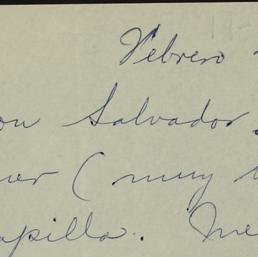 Febrero
on Salvador
ner (muy
apilla. Me